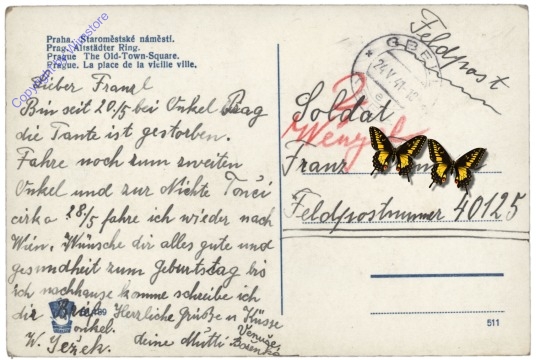 Praha. Staroměstské náměstí.
Prag. Altstädter Ring.
Prague The Old-Town-Square.
Prague. La place de la vieille ville.
Feldpost
Lieber Franzl
Bin seit 20/5 bei Onkel Prag
die Tante ist gestorben.
Fahre noch zum zweiten
Onkel und zur Nichte Tonči
cirka 28/5 fahre ich wieder nach
Wien. Wünsche dir alles gute und
gesundheit zum Geburtstag bis
ich nachhause komme schreibe ich
dir Brief. Herrliche grüße u Küsse
onkel. deine Mutti
W. Ježek.
Soldat
Franz
Feldpostnummer 40125
511